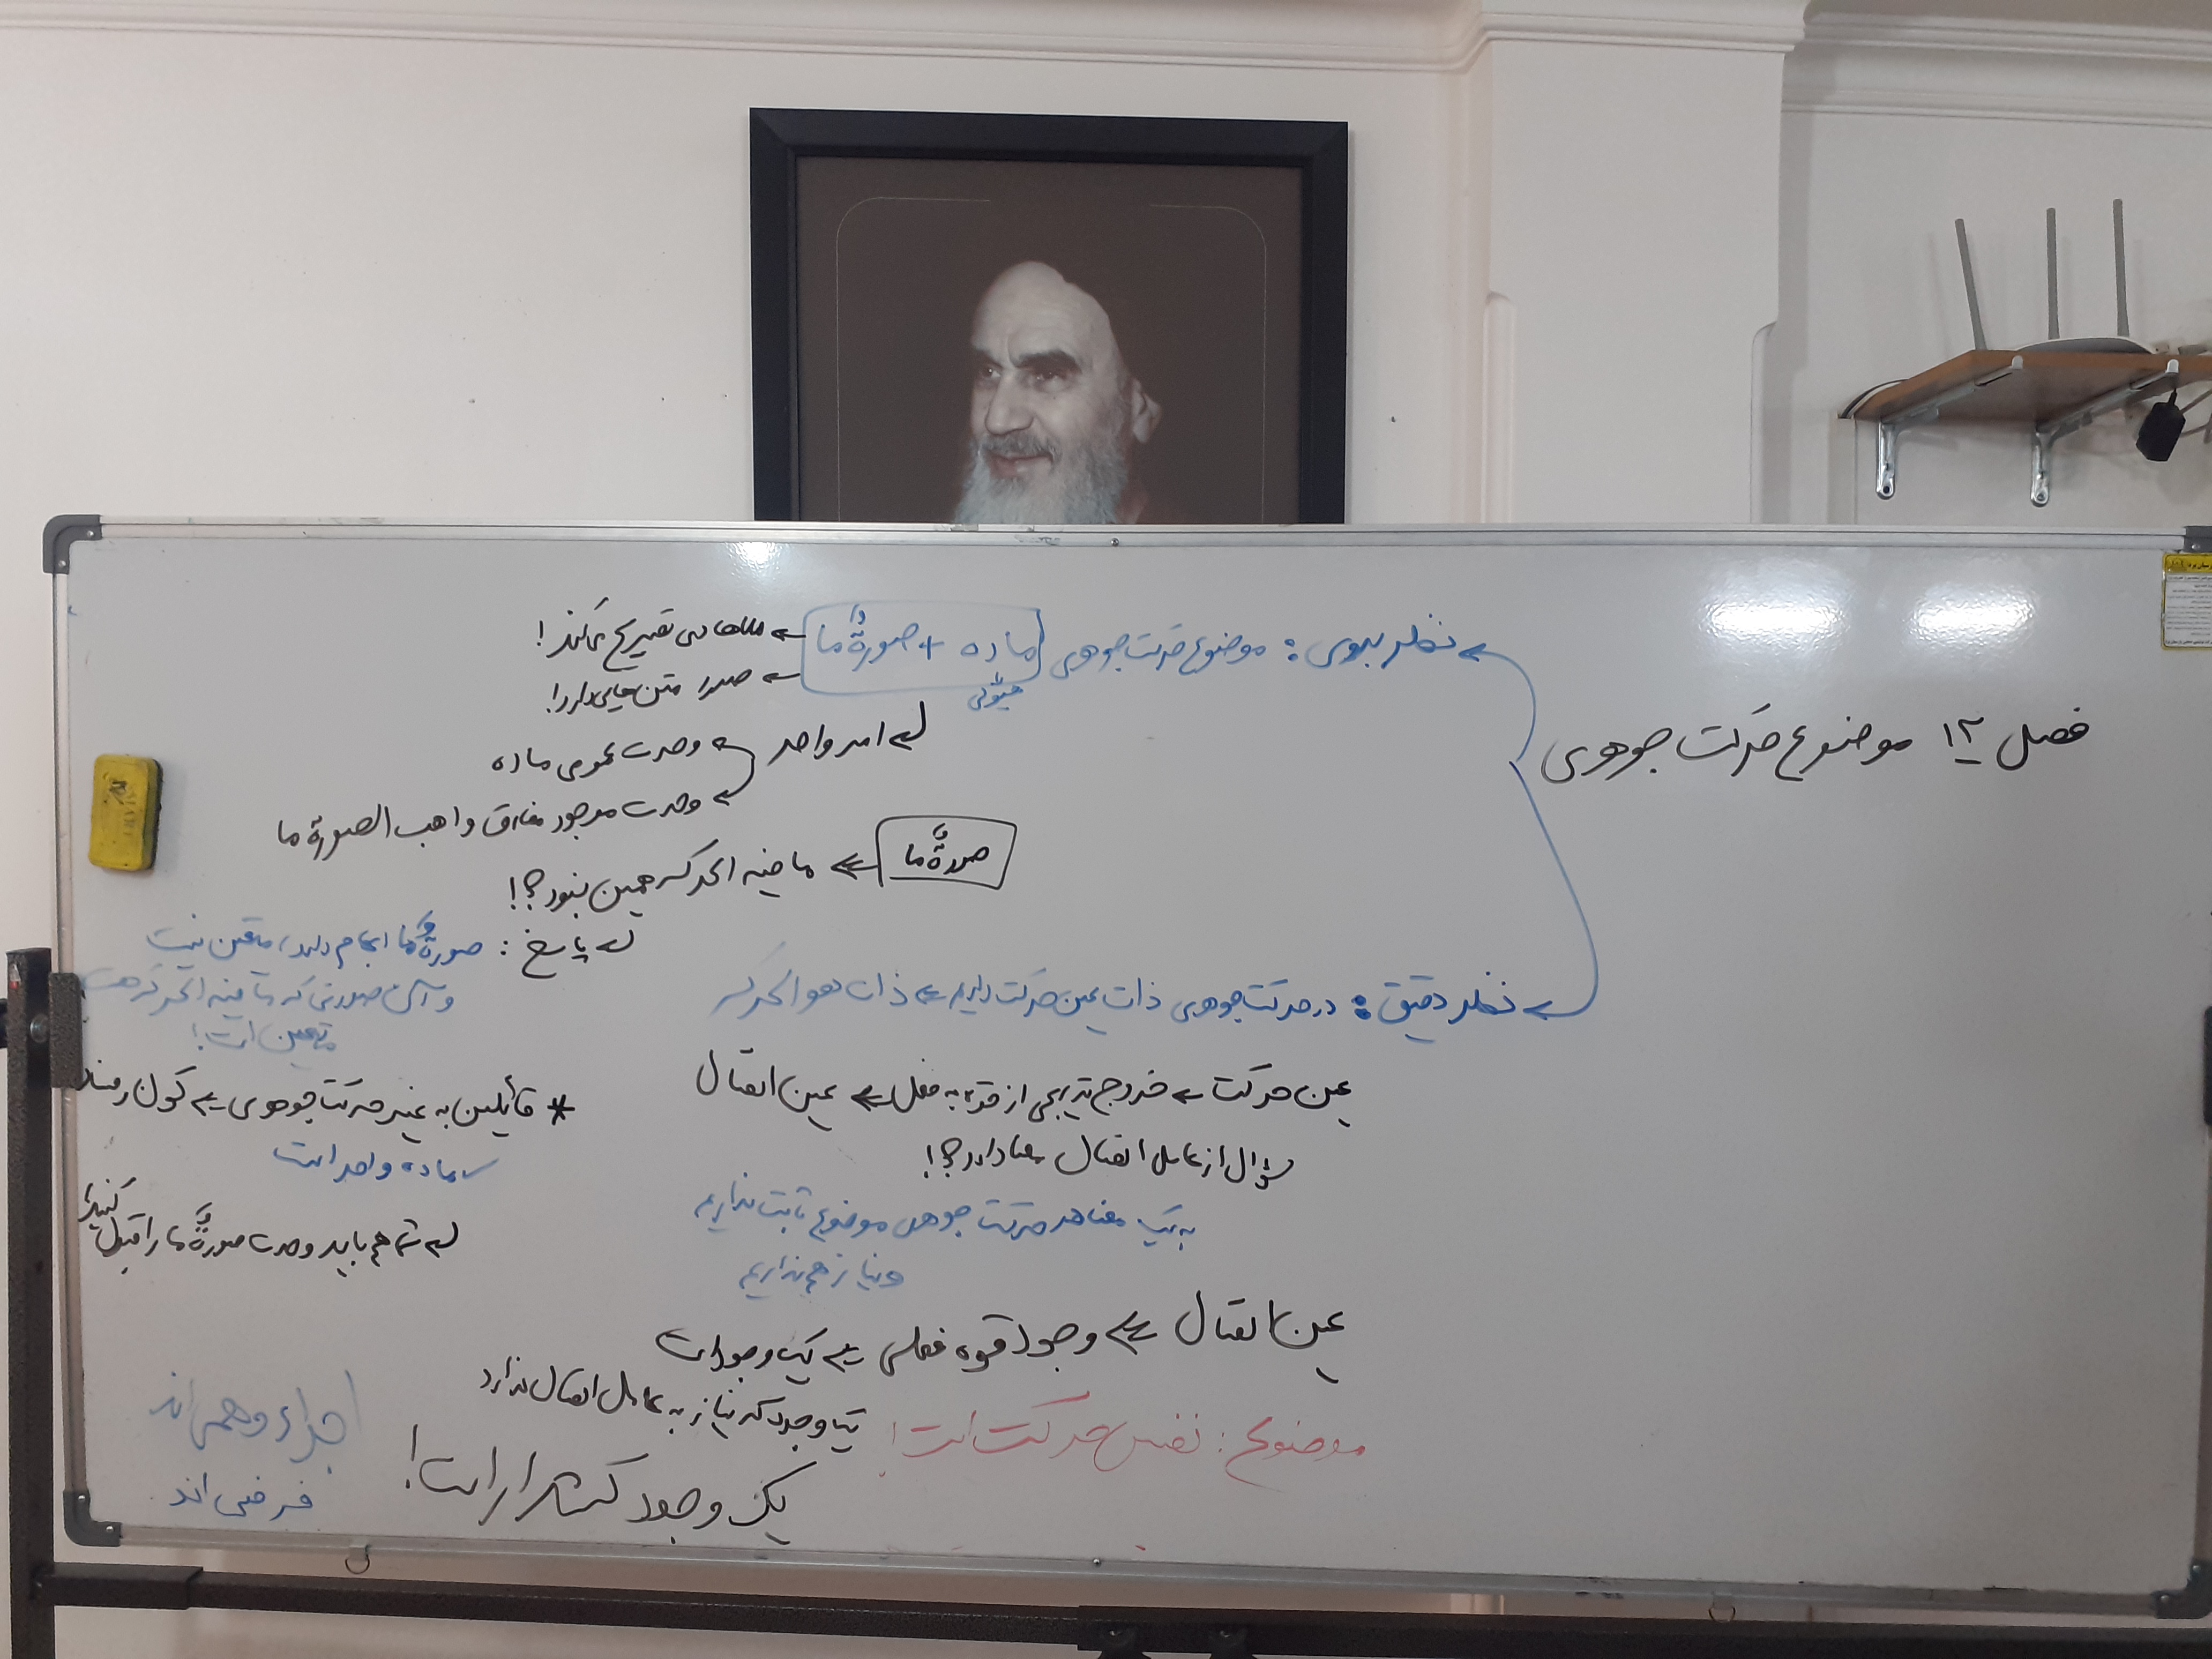 فصل ۱۲ موضوع حرکت جوهری
نظر بدوی: موضوع حرکت جوهری ماده + صورةٌ ما
هیولی
ملاهادی تصریح می‌کند!
صدرا متن‌هایی دارد!
امر واحد
وحدت عمومی ماده
وحدت موجود مفارق واهب الصورة ما
صورةٌ ما ⇐ ما فیه الحرکه همین نبود؟!
پاسخ: صورةٌ ما ابهام دارد، متعین نیست
و آن صورتی که ما فیه الحرکة هست
متعین است!
نظر دقیق: در حرکت جوهری ذات عین حرکت داریم ⇐ ذات هو الحرکه
عین حرکت ← خروج تدریجی از قوه به فعل ⇐ عین اتصال
سؤال از عامل اتصال معنا دارد؟!
به یک معنا هر حرکت جوهری موضوع ثابت نداریم
و نیاز هم نداریم
* قائلین به غیر حرکت جوهری ⇐ کون و فساد
ماده واحد است
شما هم باید وحدت صورةٌ ما را قبول کنید!
عین اتصال ⇐ وجود قوه فعلی ⇐ یک وجود است
یک وجود که نیاز به عامل اتصال ندارد
موضوع: نفس حرکت است!
یک وجود کشدار است!
اجزاء وهمی‌اند
فرضی‌اند